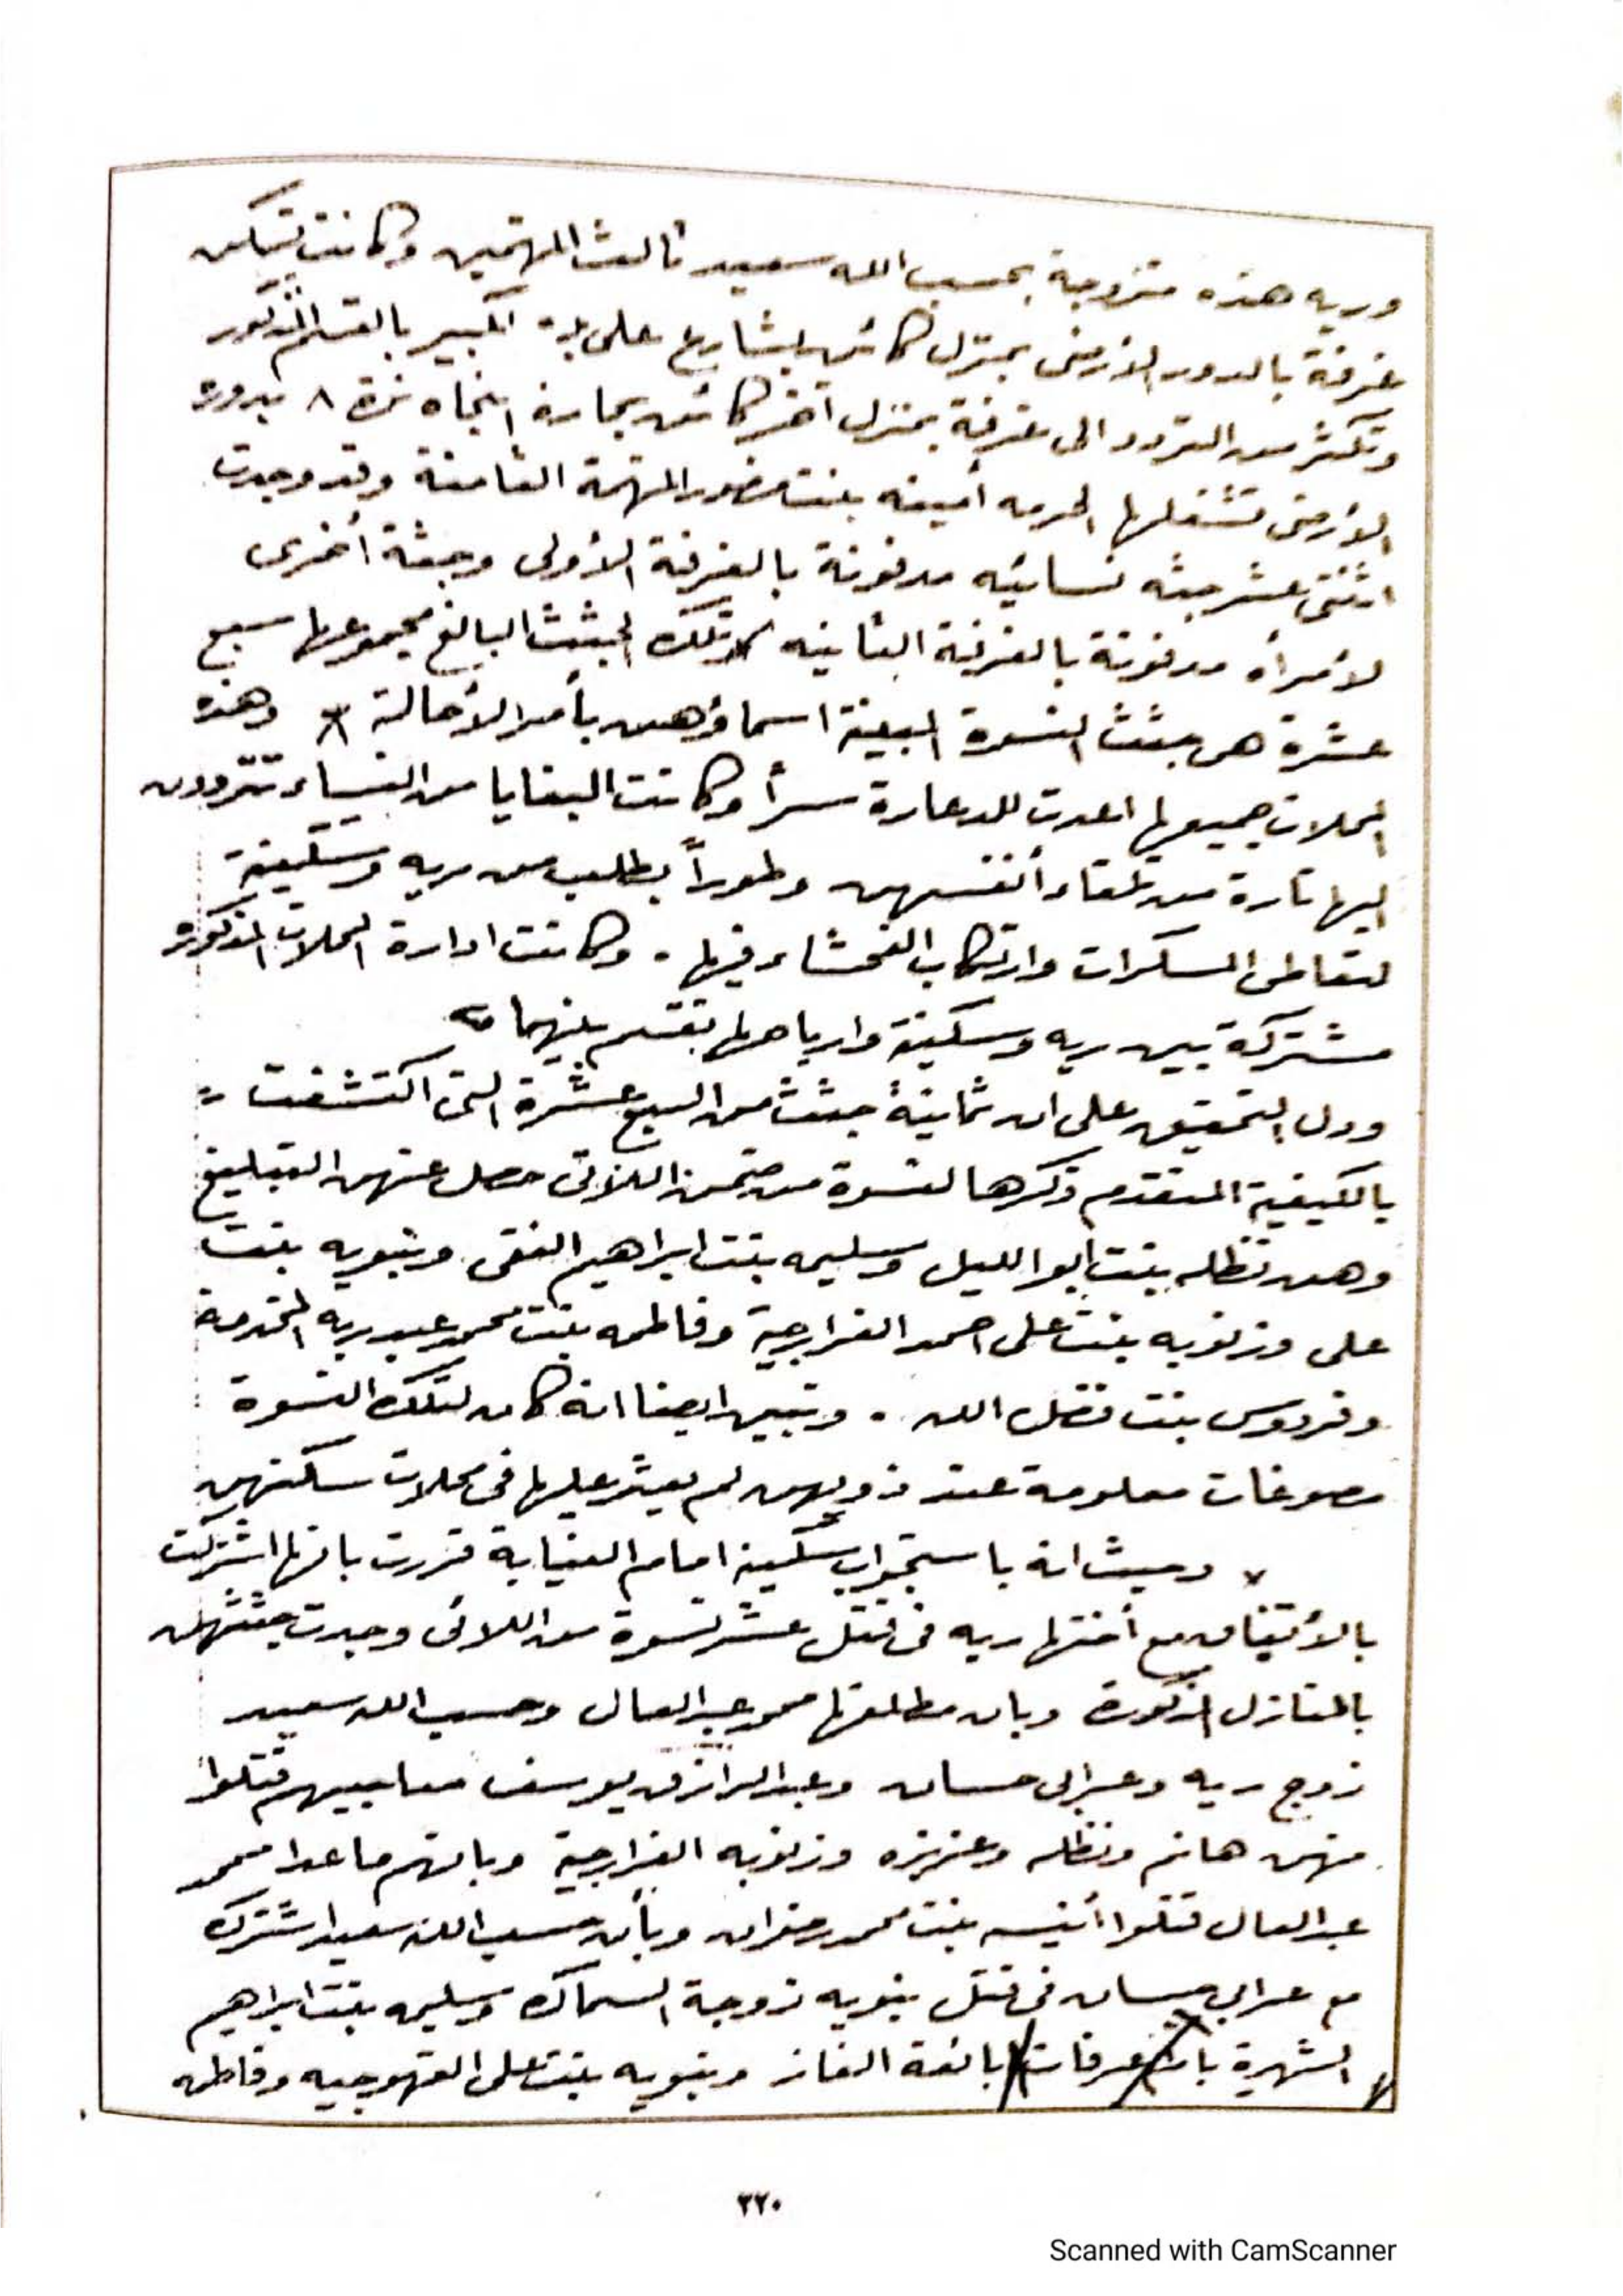 وريه هذه متزوجة بحسب الله سعيد ثالث المتهمين وكانت تسكن
غرفة بالدور الارضى بمنزل كائن بشارع على بك الكبير بالقسم المذكور
وتكثر من التردد الى غرفة بمنزل آخر كائن بحارة النجاه نمرة ٨ بدوره
الارضى تشغلها الحرمه أمينه بنت منصور المتهمة الثامنة وقد وجدت
اثنتى عشر جثه نسائيه مدفونة بالغرفة الأولى وجثة أخرى
لأمرأه مدفونة بالغرفة الثانيه تلك الجثث البالغ مجموعها سبع
عشرة هى جثث النسوة المبينة اسماؤهن بأمر الأحالة وهذه
المحلات جميعها اعدت للدعارة سراً وكانت البغايا من النساء تترددن
اليها تارة من تلقاء أنفسهن وطوراً بطلب من ريه وسكينة
لتعاطى المسكرات وارتكاب الفحشاء فيها . وكانت ادارة المحلات المذكوره
مشتركة بين ريه وسكينة وارباحها تقسم بينهما
ودل التحقيق على ان ثمانية جثث من السبع عشرة التى اكتشفت =
بالكيفية المتقدم ذكرها لنسوة من ضمن اللاتى حصل عنهن التبليغ
وهن نظله بنت ابو الليل وسليمه بنت ابراهيم الفقى ونبويه بنت
على وزنوبه بنت على احمد الفرارجية وفاطمه بنت محمد عبد ربه المخدمة
وفردوس بنت فضل الله . وتبين ايضا انه كان لتلك النسوة
مصوغات معلومة عند ذويهن لم يعثر عليها فى محلات سكنهن
وحيث انه باستجواب سكينة امام النيابة قررت بانها اشتركت
بالأتفاق مع أختها ريه فى قتل عشر نسوة من اللائى وجدت جثثهن
بالمنازل المذكورة وبان مطلقها محمد عبد العال وحسب الله سعيد
زوج ريه وعرابى حسان وعبد الرازق يوسف مصاحبيهم قتلوا
منهن هانم ونظله وعزيزه وزنوبه الفرارجية وبانهم ماعدا محمد
عبد العال قتلوا أنيسه بنت محمد رضوان وبأن حسب الله سعيد اشترك
مع عرابى حسان فى قتل نبويه زوجة السماك وسليمه بنت ابراهيم
الشهيرة بام عرفات بائعة الغاز ونبويه بنت على القهوجيه وفاطمه
٣٢٠
Scanned with CamScanner